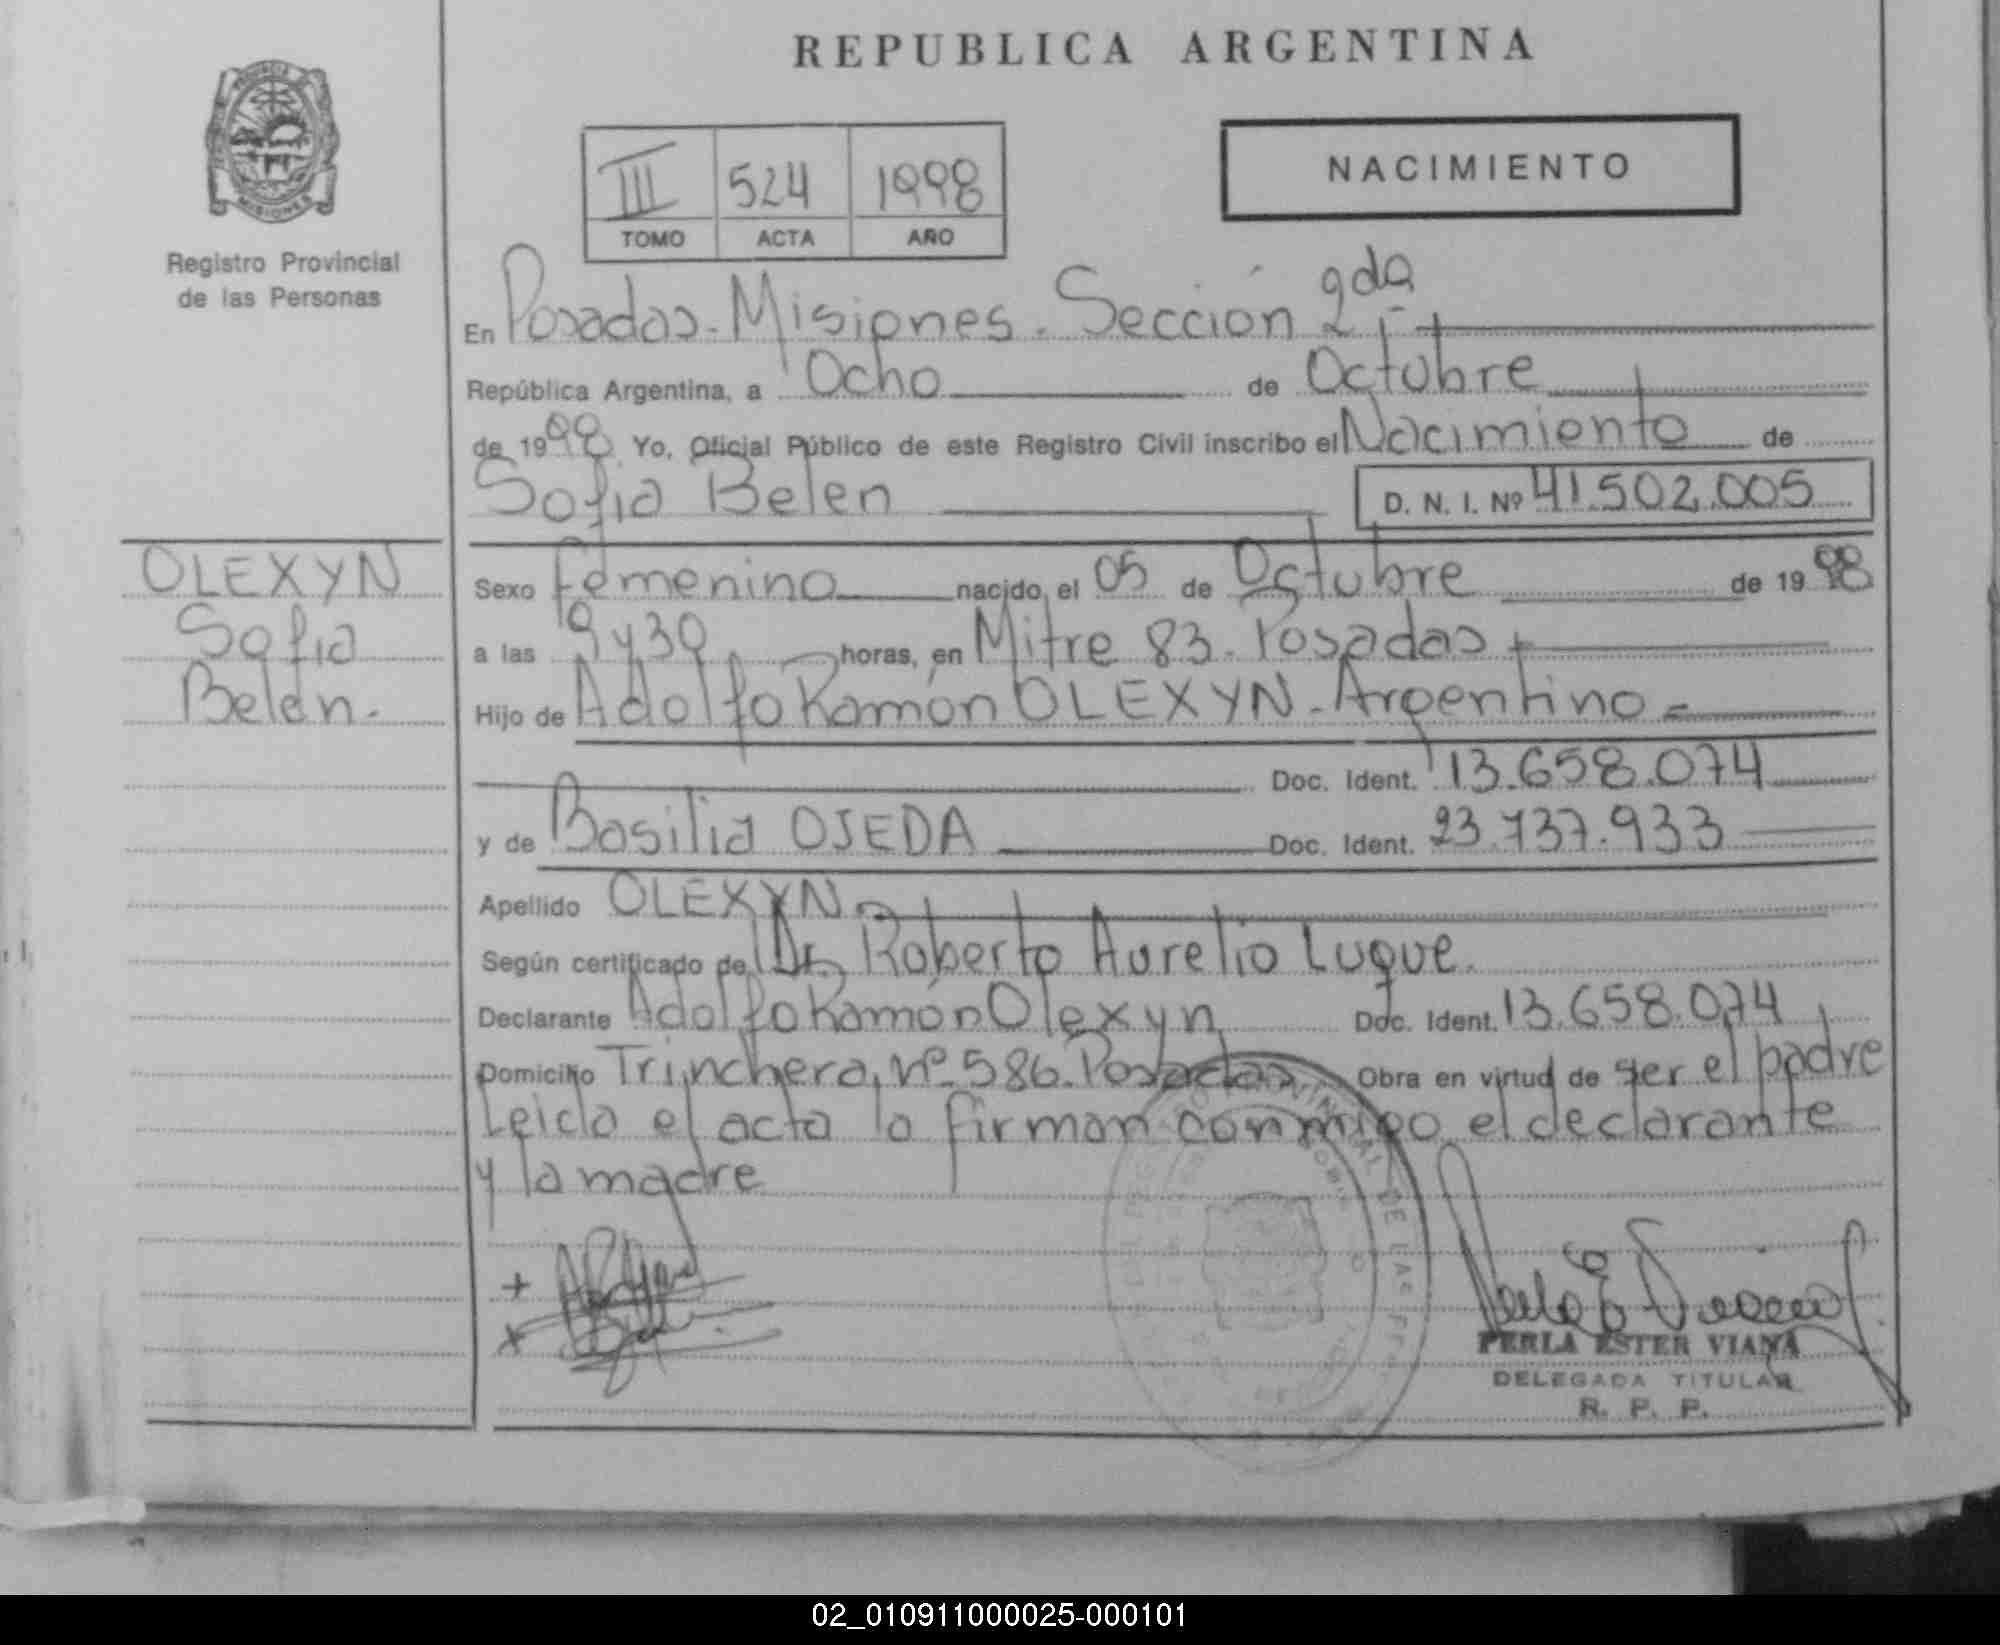 REPUBLICA ARGENTINA
MISIONES
Registro Provincial
de las Personas
III 524 1998
TOMO ACTA AÑO
NACIMIENTO
En Posadas-Misiones. Sección 2da
República Argentina, a Ocho de Octubre
de 1998 Yo, Oficial Público de este Registro Civil inscribo el Nacimiento de
Sofia Belen D. N. I. Nº 41.502.005
OLEXYN
Sofia
Belén.
Sexo femenino nacido el 05 de Octubre de 1998
a las 9 y 30 horas, en Mitre 83. Posadas
Hijo de Adolfo Ramón OLEXYN-Argentino
Doc. Ident. 13.658.074
y de Basilia OJEDA Doc. Ident. 23.737.933
Apellido OLEXYN
Según certificado de Dr. Roberto Aurelio Luque.
Declarante Adolfo Ramón Olexyn Doc. Ident. 13.658.074
Domicilio Trinchera nº 586. Posadas Obra en virtud de ser el padre
Leida el acta la firman conmigo el declarante
y la madre
PERLA ESTER VIANA
DELEGADA TITULAR
R. P. P.
02_010911000025-000101